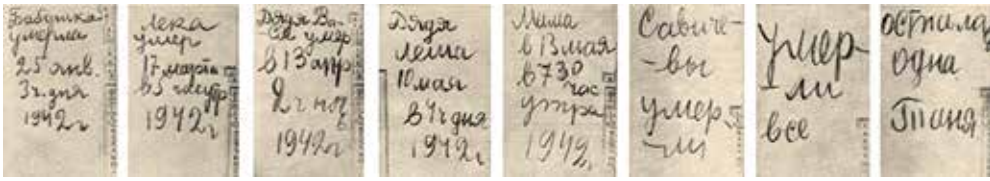 Бабушка
умерла
25 янв.
3ч. дня
1942 г
Лека
умер
17 марта
в 5 час утр
1942 г
Дядя Ва-
ся умер
в 13 апр
2 ч ноч
1942 г
Дядя
Леша
10 мая
в 4 ч дня
1942 г
Мама
в 13 мая
в 730
час
утра
1942 г
Савиче-
-вы
умер-
-ли
умер-
-ли
все
осталас
одна
Таня